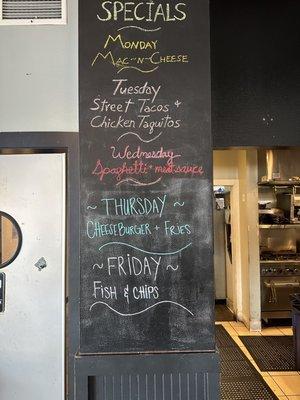 SPECIALS
MONDAY
MAC-N-CHEESE
Tuesday
Street Tacos &
Chicken Taquitos
Wednesday
Spaghetti + meat sauce
~ THURSDAY ~
CHEESEBURGER + FRIES
~ FRIDAY ~
FISH & CHIPS